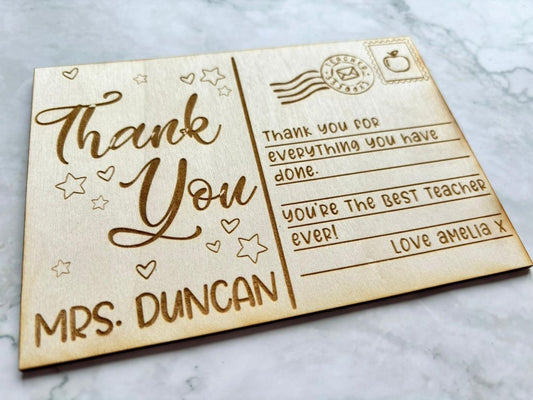 Thank
You
MRS. DUNCAN
TEACHER
Thank you for
everything you have
done.
you're the best teacher
ever!
Love Amelia x